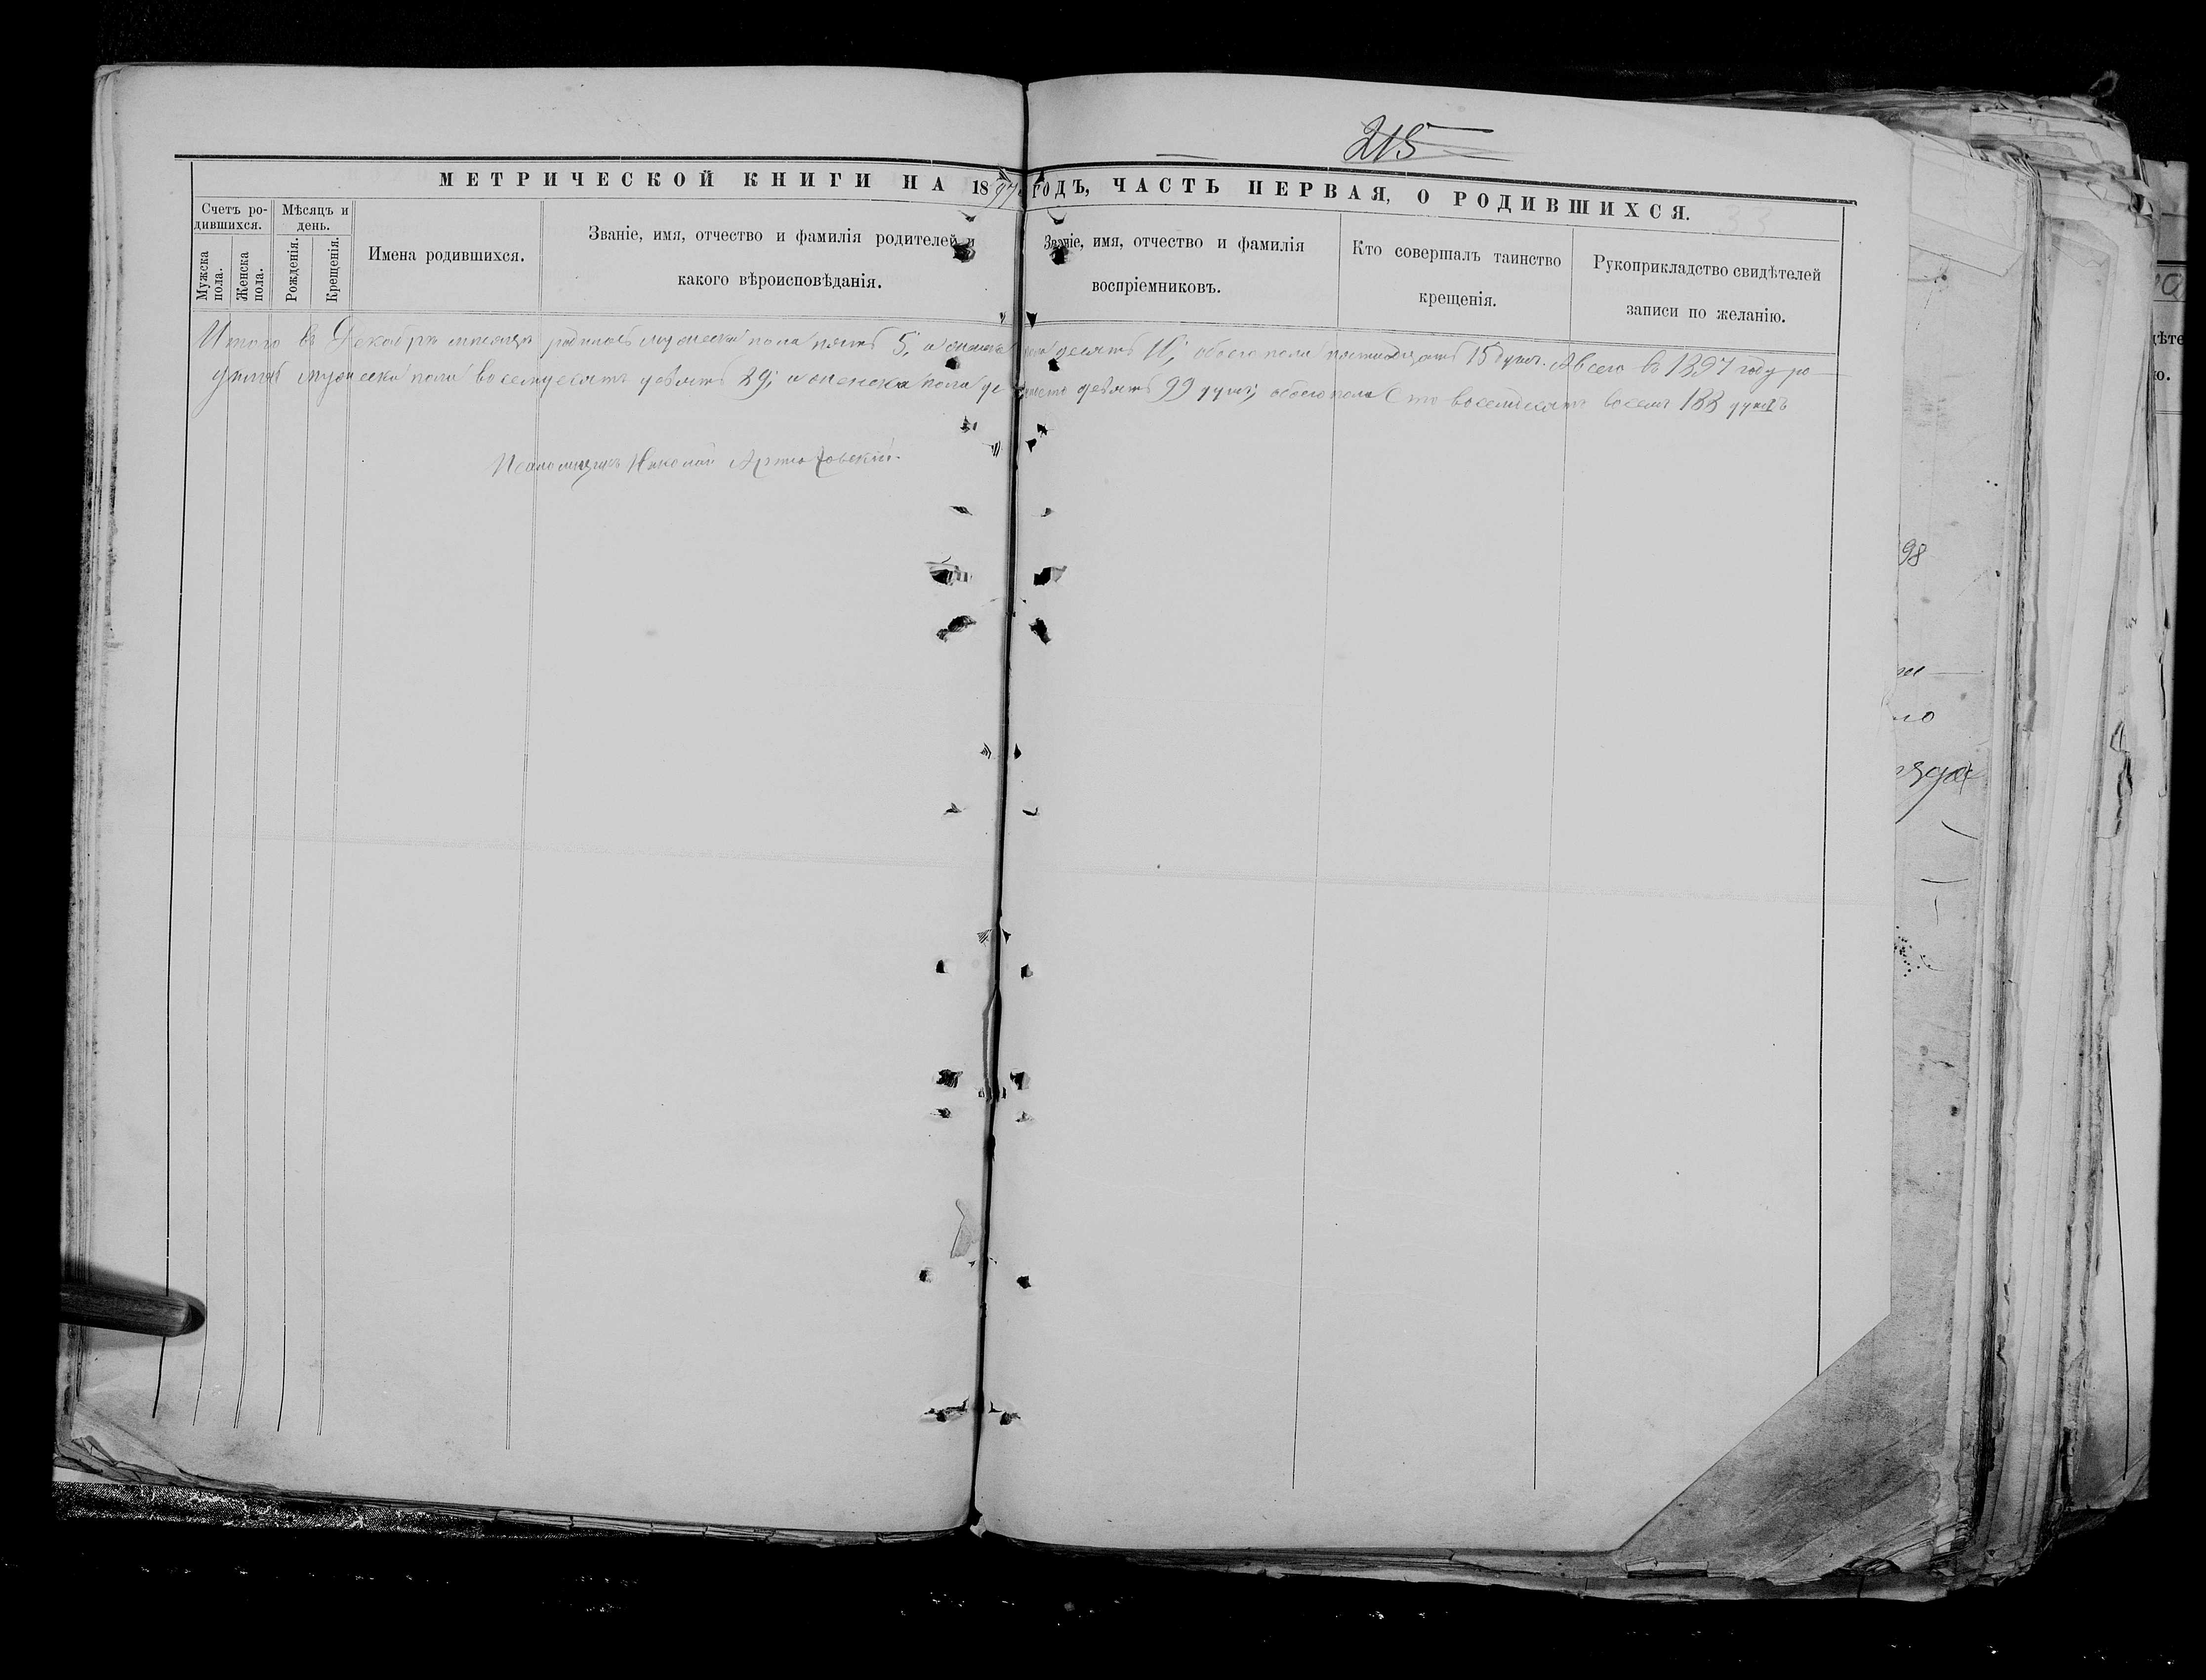 215
МЕТРИЧЕСКОЙ КНИГИ НА 1897 ГОДЪ, ЧАСТЬ ПЕРВАЯ, О РОДИВШИХСЯ.
Счетъ ро-
дившихся.
Мужска
пола.
Женска
пола.
Мѣсяцъ и
день.
Рожденія.
Крещенія.
Имена родившихся.
Званіе, имя, отчество и фамилія родителей и
какого вѣроисповѣданія.
Званіе, имя, отчество и фамилія
воспріемниковъ.
Кто совершалъ таинство
крещенія.
Рукоприкладство свидѣтелей
записи по желанію.
Итого въ Декабрѣ мѣсяцѣ родилось мужеска пола пять 5, и женска пола десять 10; обоего пола пятнадцать 15 душъ. А всего въ 1897 году ро-
дилось мужеска пола восемьдесятъ девять 89; и женска пола девяносто девять 99 душъ; обоего пола сто восемьдесятъ восемь 188 душъ
Псаломщикъ Николай
98